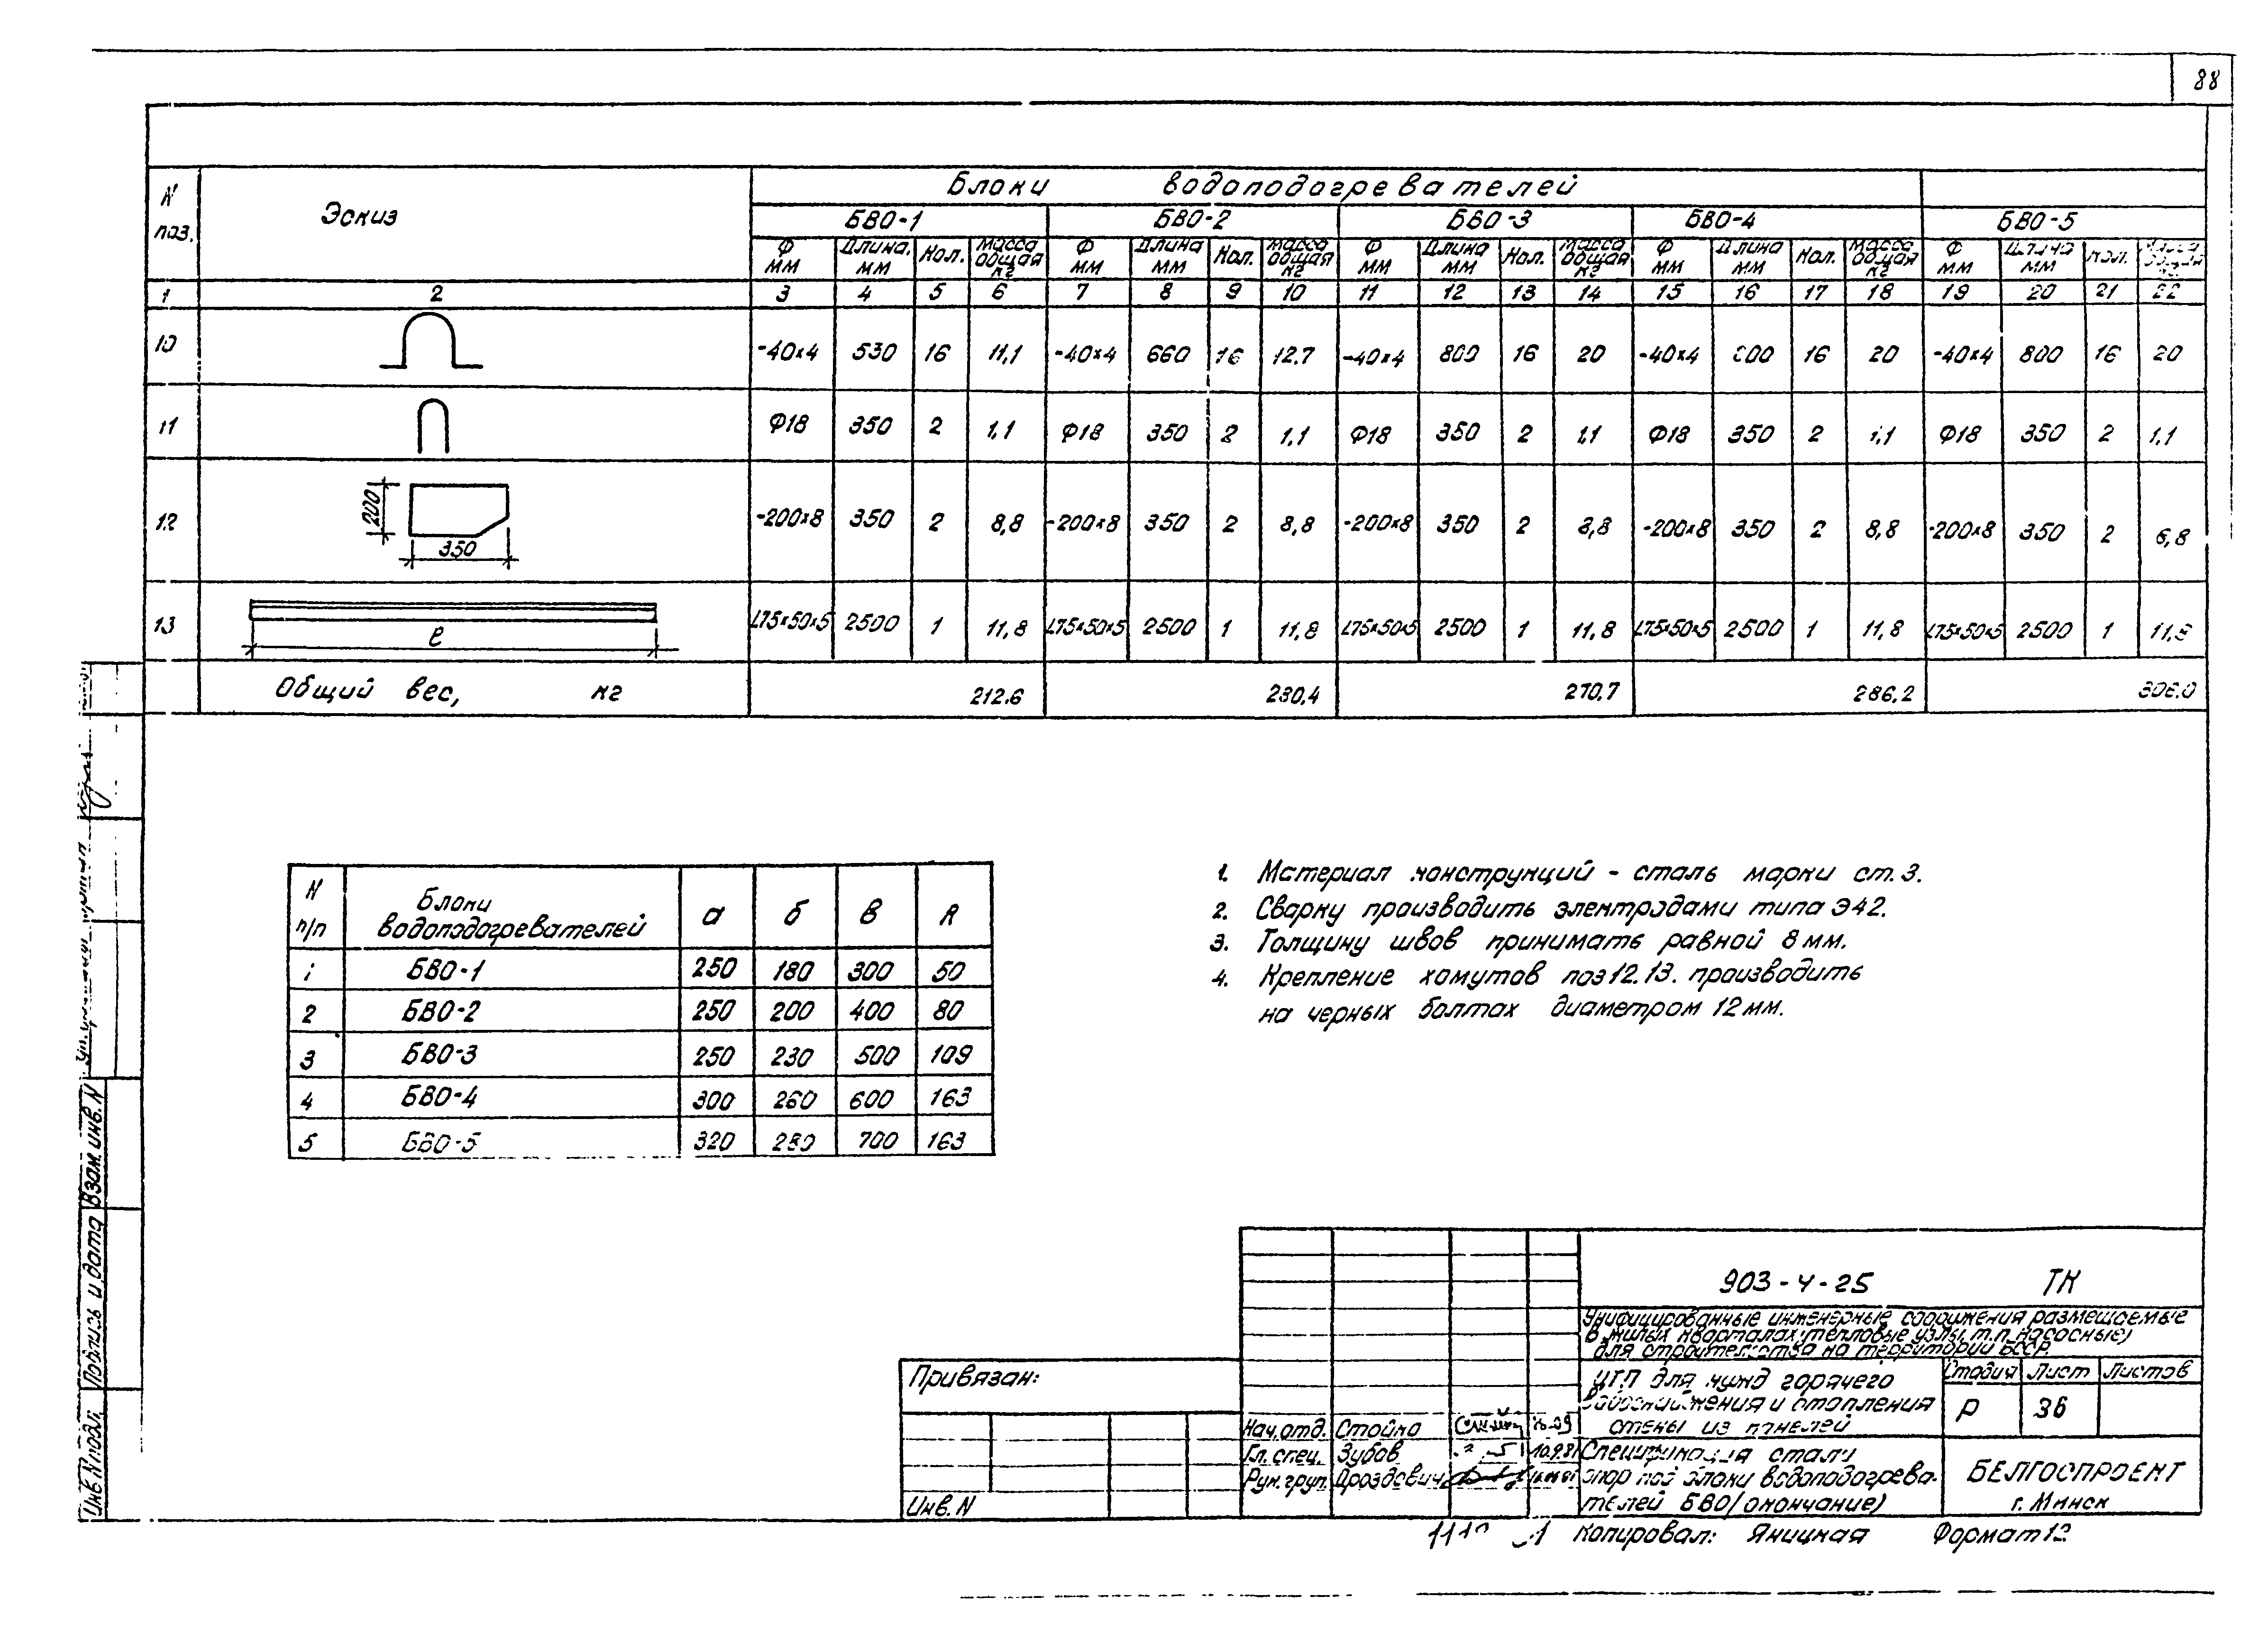 88
N поз. Эскиз Блоки водоподогревателей
БВО-1 БВО-2 БВО-3 БВО-4 БВО-5
Ф мм Длина, мм Кол. Масса общая кг Ф мм Длина мм Кол. Масса общая кг Ф мм Длина мм Кол. Масса общая кг Ф мм Длина мм Кол. Масса общая кг Ф мм Длина мм Кол.
1 2 3 4 5 6 7 8 9 10 11 12 13 14 15 16 17 18 19 20 21 22
10 -40×4 530 16 11,1 -40×4 660 16 12.7 -40×4 800 16 20 -40×4 800 16 20 -40×4 800 16 20
11 Ф18 350 2 1,1 Ф18 350 2 1,1 Ф18 350 2 1,1 Ф18 350 2 1,1 Ф18 350 2 1,1
12 200 350 -200×8 350 2 8,8 -200×8 350 2 8,8 -200×8 350 2 8,8 -200×8 350 2 8,8 -200×8 350 2
13 ℓ L75×50×5 2500 1 11,8 L75×50×5 2500 1 11,8 L75×50×5 2500 1 11,8 L75×50×5 2500 1 11,8 L75×50×5 2500 1 11,8
Общий вес, кг 212.6 230,4 270,7 286,2 306.0
N п/п Блоки водоподогревателей а б в R
1 БВО-1 250 180 300 50
2 БВО-2 250 200 400 80
3 БВО-3 250 230 500 109
4 БВО-4 300 260 600 163
5 БВО-5 320 280 700 163
1. Материал конструкций - сталь марки ст. 3.
2. Сварку производить электродами типа Э42.
3. Толщину швов принимать равной 8 мм.
4. Крепление хомутов поз 12.13. производить
на черных болтах диаметром 12 мм.
Взам. инв. N
Подпись и дата
Инв. N подл.
903-4-25 ТК
Унифицированные инженерные сооружения размещаемые
в жилых кварталах (тепловые узлы, т.п. насосные)
для строительства на территории БССР.
Привязан:
ЦТП для нужд горячего
водоснабжения и отопления
стены из панелей
Стадия Лист Листов
Р 36
Нач. отд. Стойко
Гл. спец. Зубов 10.9.81
Рук. груп. Дроздович
Спецификация стали
опор под блоки водоподогрева-
телей БВО (окончание)
БЕЛГОСПРОЕКТ
г. Минск
Инв. N
Копировал: Яницкая Формат 12